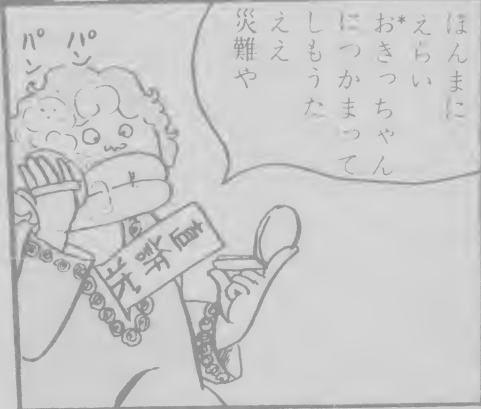 ほんまに
えらい
*おきっちゃん
につかまって
しもうた
ええ
災難や
パン
パン
直訴状